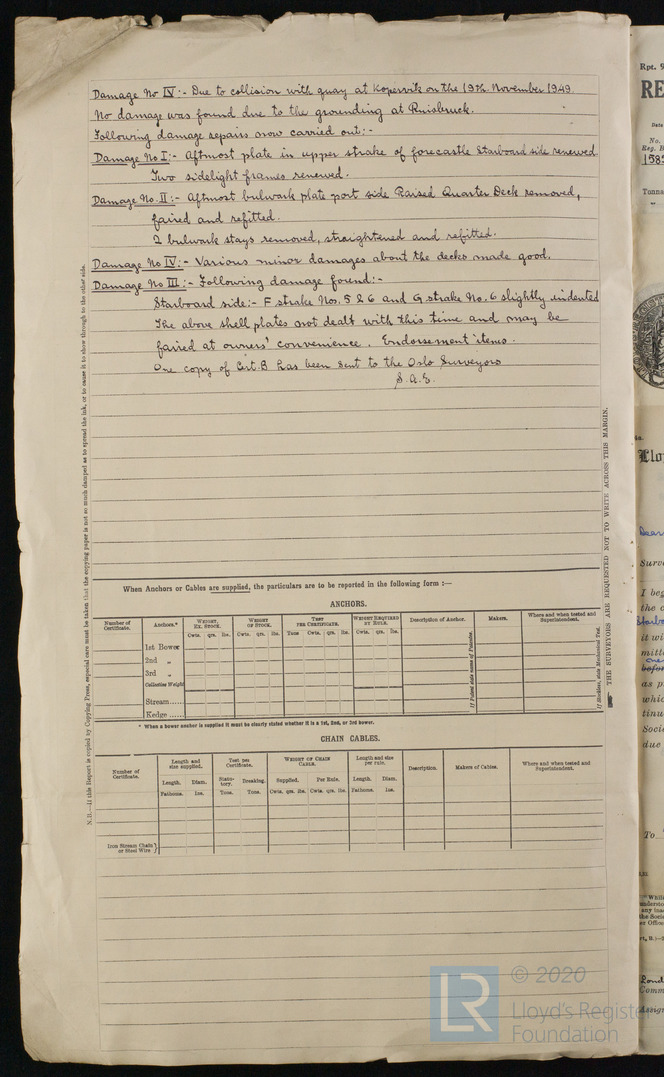 Damage No IV:- Due to collision with quay at Kopervik on the 19th. November 1949.
No damage was found due to the grounding at
Following damage repairs now carried out:-
Damage No I:- Aftmost plate in upper strake of forecastle Starboard side renewed.
Two sidelight frames renewed.
Damage No. II:- Aftmost bulwark plate port side Raised Quarter Deck removed,
faired and refitted.
2 bulwark stays removed, straightened and refitted.
Damage No IV:- Various minor damages about the decks made good.
Damage No III:- Following damage found:-
Starboard side:- F strake Nos. 5 & 6 and G strake No. 6 slightly indented
The above shell plates not dealt with this time and may be
faired at owners' convenience. Endorsement items.
One copy of Cert. B has been sent to the Oslo Surveyors
N.B.—If this Report is copied by Copying Press, especial care must be taken that the copying paper is not so much damped as to spread the ink, or to cause it to show through to the other side.
THE SURVEYORS ARE REQUESTED NOT TO WRITE ACROSS THIS MARGIN.
When Anchors or Cables are supplied, the particulars are to be reported in the following form :—
ANCHORS.
Number of Certificate. Anchors.* Weight, Ex. Stock. Weight of Stock. Test per Certificate. Weight Required by Rule. Description of Anchor. Makers. Where and when tested and Superintendent.
Cwts. qrs. lbs. Cwts. qrs. lbs. Tons Cwts. qrs. lbs. Cwts. qrs. lbs.
1st Bower
2nd „
3rd „
Collective Weight
Stream......
Kedge ......
If Patent state name of Patentee.
If Stockless, state Mechanical Test.
* When a bower anchor is supplied it must be clearly stated whether it is a 1st, 2nd, or 3rd bower.
CHAIN CABLES.
Number of Certificate. Length and size supplied. Test per Certificate. Weight of Chain Cable. Length and size per rule. Description. Makers of Cables. Where and when tested and Superintendent.
Length. Diam. Statutory. Breaking. Supplied. Per Rule. Length. Diam.
Fathoms. Ins. Tons. Tons. Cwts. qrs. lbs. Cwts. qrs. lbs. Fathoms. Ins.
Iron Stream Chain or Steel Wire }
LR
© 2020
Lloyd's Register
Foundation
Rpt. 9
RE
No.
Reg. B
Tonna
Llo
Dear
Surve
I beg
the c
it wi
mitte
befor
as p
whic
tinu
Socie
due
To
"While
understo
any inac
the Socie
er Office
Lond
Comm
Assign